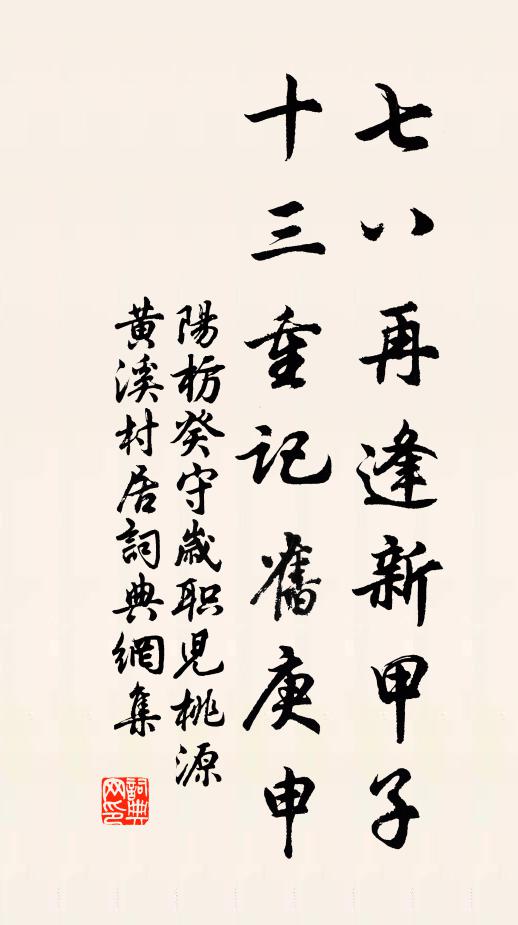 七八再逢新甲子
十三重记舊庚申
陽枋癸守歲职児桃源
黃溪村居詞典網集
詞典
网印